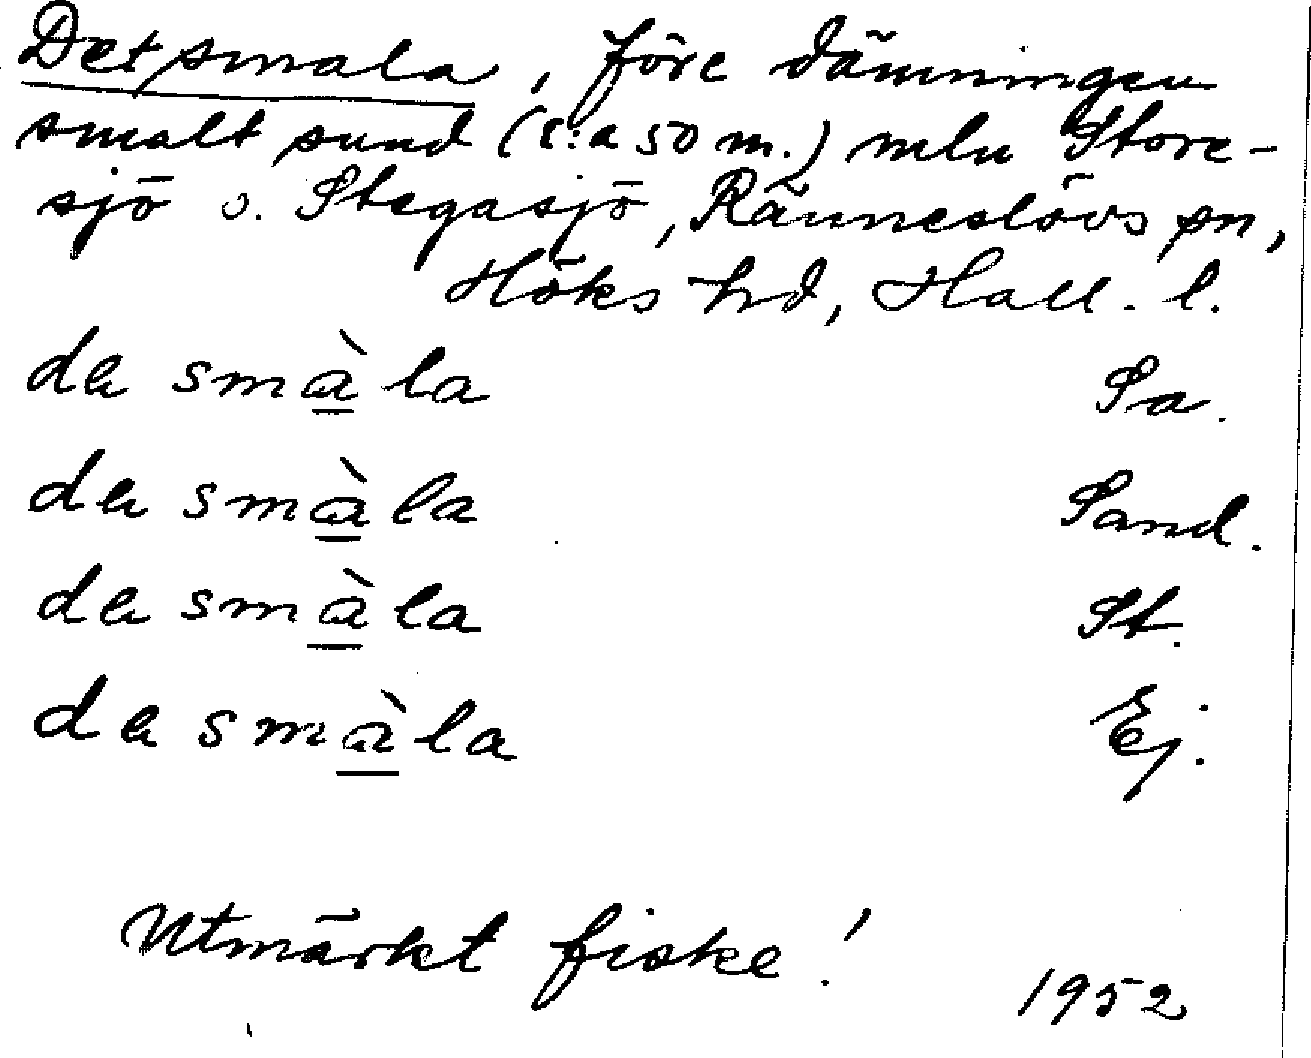 Det smala, före dämningen
smalt sund (c:a 50 m.) mln Store-
sjö o. Stegasjö, Ränneslövs sn,
Höks hd, Hall. l.
da smàla Sa.
da smàla Sand.
da smàla St.
da smàla Ej.
Utmärkt fiske!
1952